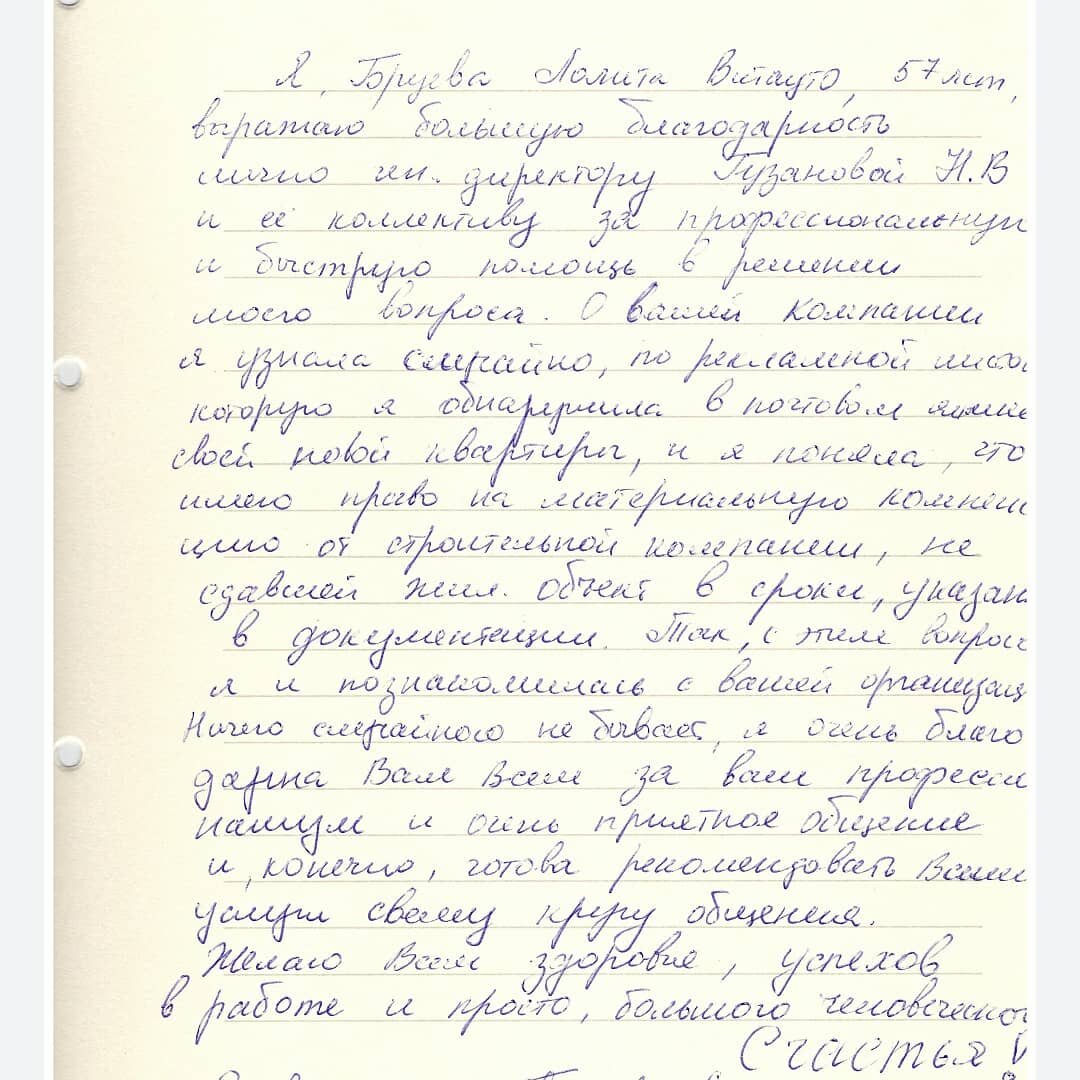 Я, Боруева Лолита Витауто, 57 лет,
выражаю большую благодарность
лично ген. директору Гузановой Н.В
и её коллективу за профессиональную
и быструю помощь в решении
моего вопроса. О вашей компании
я узнала случайно, по рекламной
которую я обнаружила в почтовом ящике
своей новой квартиры, и я поняла, что
имею право на материальную компен
цию от строительной компании, не
сдавшей жил. объект в сроки, указан
в документации. Так, с этим вопрос
я и познакомилась с вашей организац
Ничего случайного не бывает, я очень благо
дарна Вам всем за ваш професси
нализм и очень приятное общение
и, конечно, готова рекомендовать Ваши
услуги своему кругу общения.
Желаю Вам здоровья, успехов
в работе и просто, большого человеческог
Счастья!